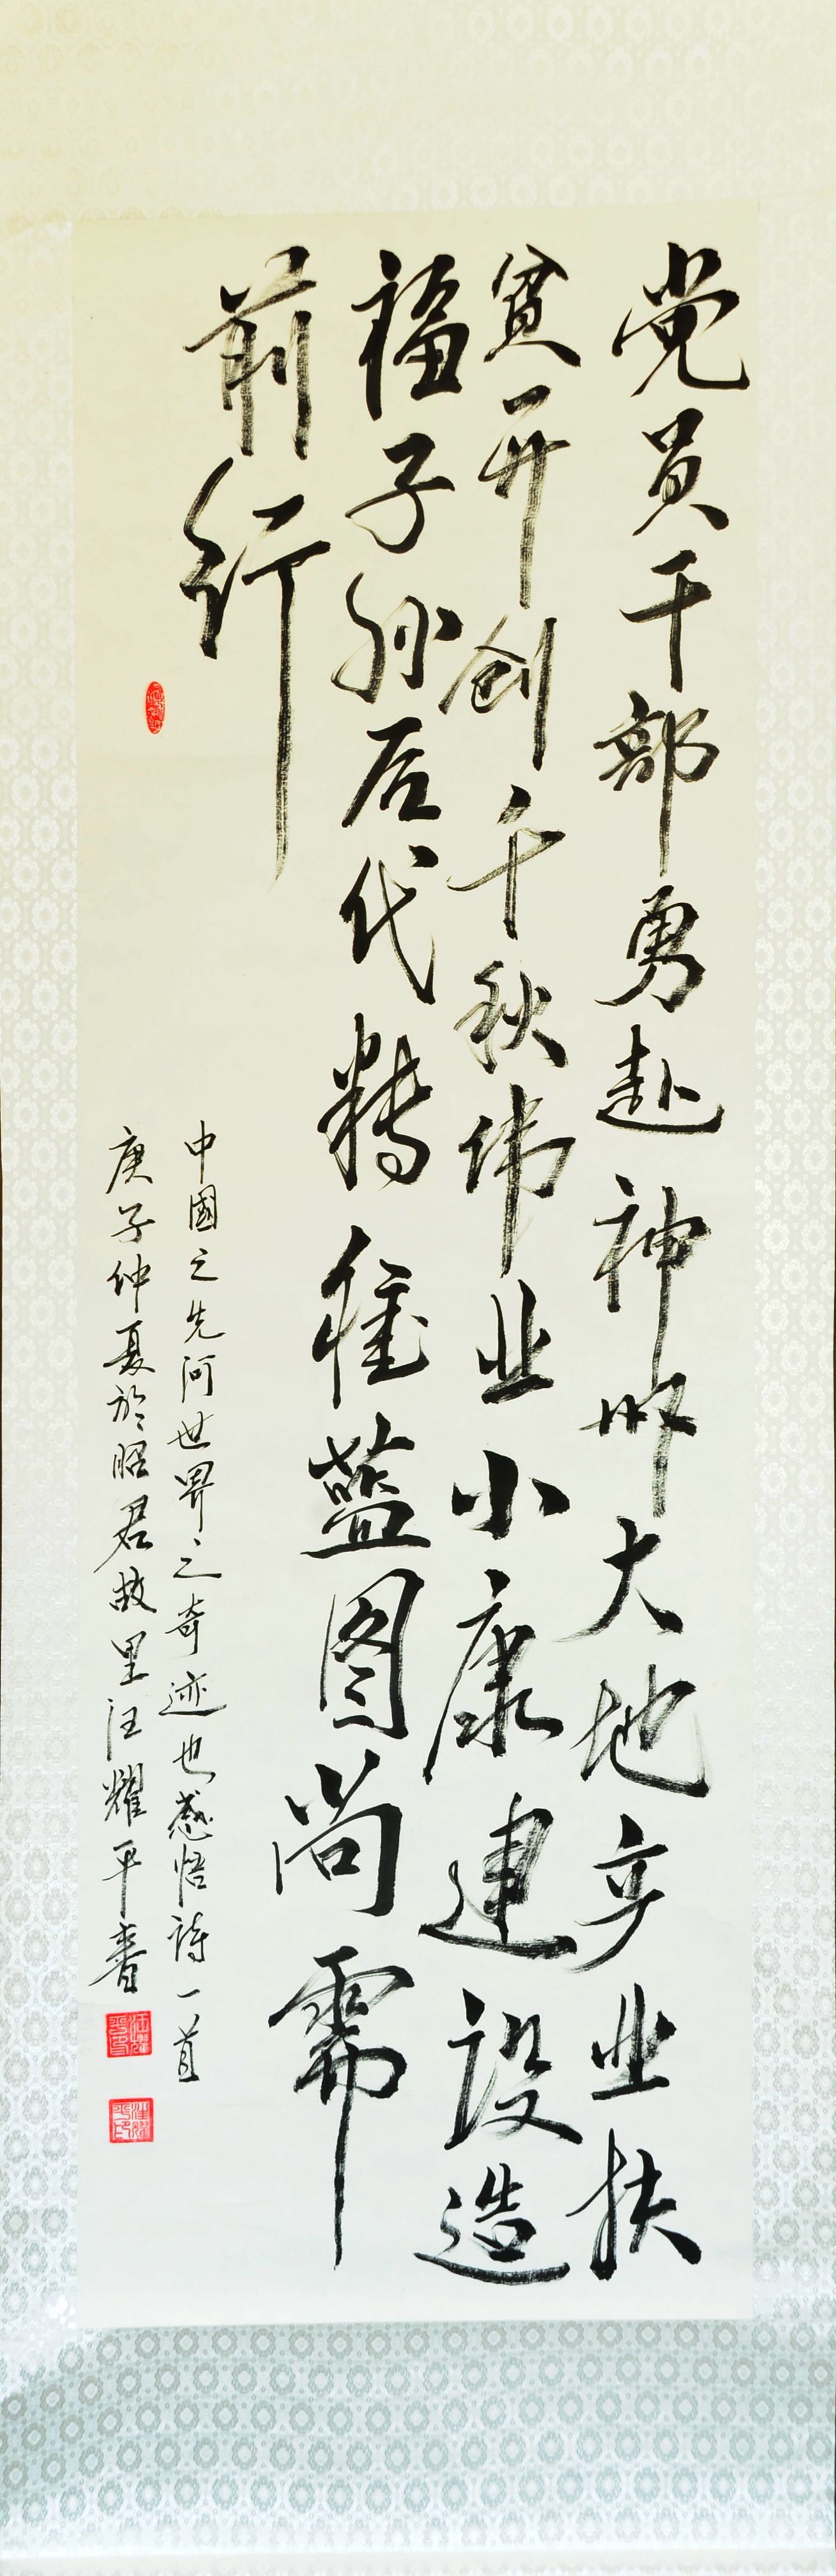 党员干部勇赴神州大地产业扶
贫开创千秋伟业小康建设造
福子孙后代精准藍图尚需
前行
中國之先河世界之奇迹也感悟詩一首
庚子仲夏於昭君故里汪耀平書